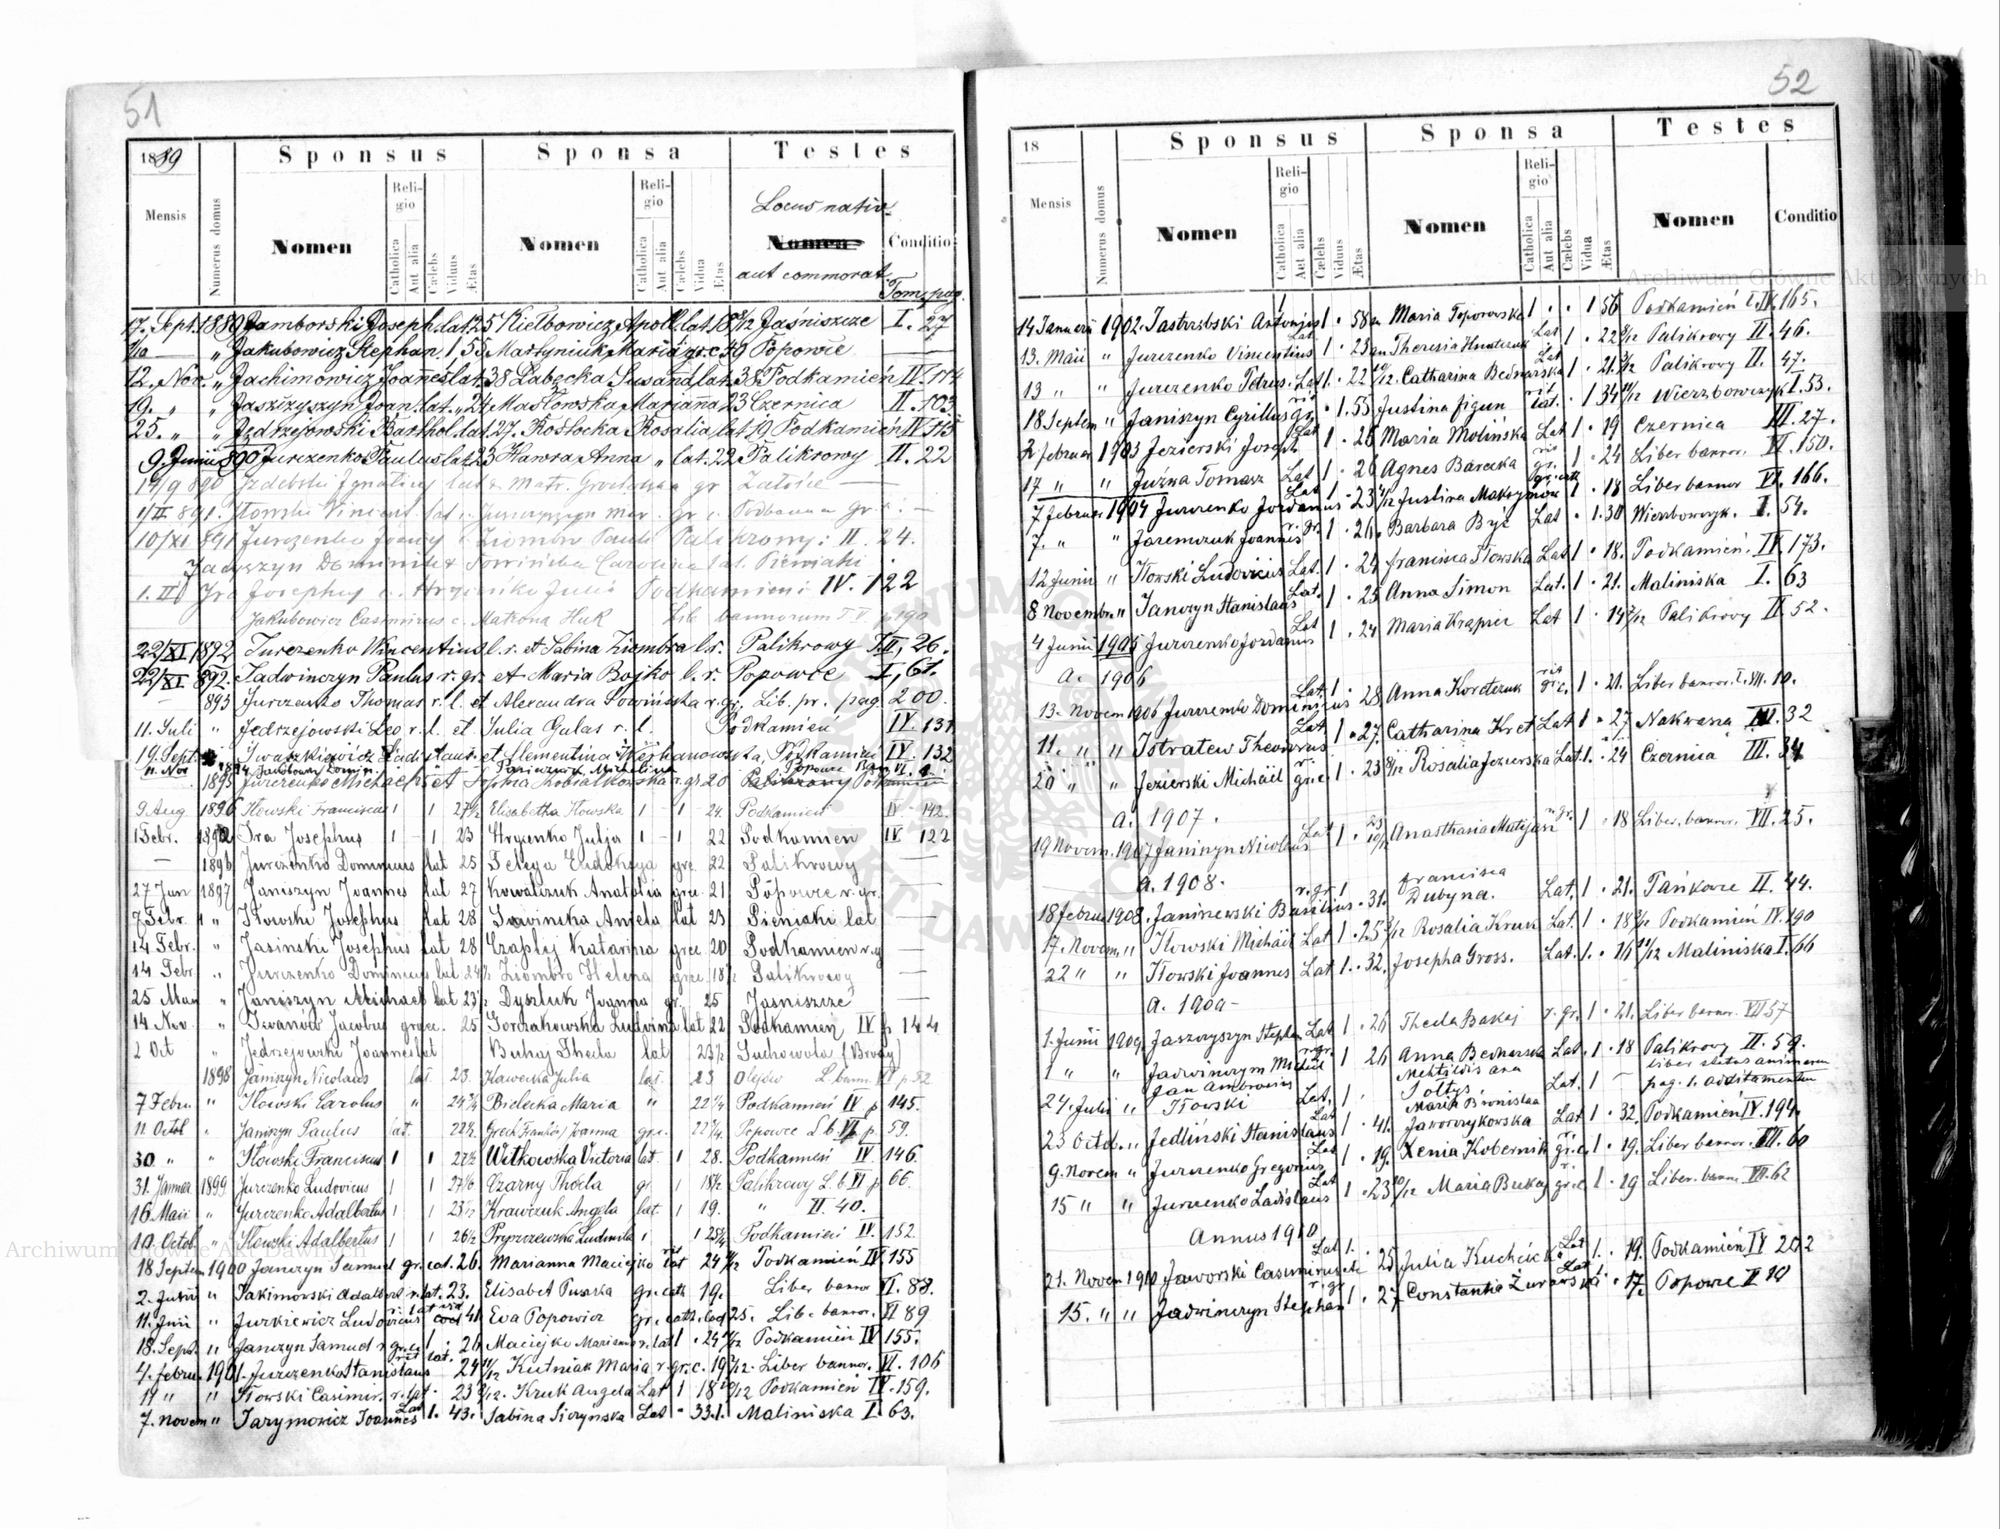 51
1889
Sponsus Sponsa Testes
Mensis Numerus domus Nomen Religio Catholica Aut alia Cælebs Viduus Ætas Nomen Religio Catholica Aut alia Cælebs Vidua Ætas Locus nativ. Nomen aut commorat. Conditio Tom. pag.
17. Sept. 1889 Jamborski Joseph. lat. 25 Kiełbowicz Apoll. lat. 18 Jaśniszcze I. 27
" Jakubowicz Stephan. 1, 55 Martyniuk Maria gr.c. 49 Popowce —
12. Nov. " Jachimowicz Joannes lat. 38 Łabęcka Susanna lat. 38 Podkamień IV. 114
19. " " Jaszczyszyn Joan. lat. " 24 Masłowska Marianna 23 Czernica II. 103
25. " " Jędrzejowski Barthol. lat. 27. Rosłocka Rosalia lat. 19 Podkamień IV 115
9. Junii 890 Jurczenko Paulus lat. 23 Hawra Anna " lat. 22 Palikrowy II. 22
14/9 890 Izdebski Ignatius lat. Matr. gr Załośce —
1/II 891. Iłowski Vincent. lat. Mar. gr. c. Podkamień gr. r. —
10/XI 891 Jurczenko Josephus Ziombra Paul. Palikrowy: II. 24.
Jadyszyn Dominik Carolina lat. Pieniaki
1. II Ira Josephus c. Hrycenko Julia Podkamień IV. 122
Jakubowicz Casimirus c. Matrona Huk Lib. bannorum T. V p. 190
22/XI 1892 Jurczenko Wincentius l. r. et Sabina Ziombra l. r. Palikrowy T. II, 26.
22/XI 892. Jadwinczyn Paulus r. gr. et Maria Bojko l. r. Popowce I, 61.
— 893 Jurczenko Thomas r. l. et Alexandra Sowińska r. gr. Lib. pr. pag. 200.
11. Juli " Jedrzejowski Leo r. l. et Julia Gulas r. l. Podkamień IV. 131
19. Sept. " Iwaszkiewicz Ladislaus et Clementina Podkamień IV. 132
11. Nov. 1894 Jakóbowicz Domin. Michalina Popowce Bann. VI. 1.
1895 Jurczenko Michael et Sophia r. gr. 20 Palikrowy Podkamień
9. Aug 1896 Iłowski Franciscus 1 1 27½ Elisabetha Iłowska 1 – 1 24. Podkamień IV – 142.
1 Febr. 1892 Ira Josephus 1 – 1 23 Hrycenko Julja 1 – 1 22 Podkamień IV 122
— 1896 Jurczenko Dominicus lat 25 Telega Eudokiya grc. 22 Palikrowy
27 Jan 1897 Janiszyn Joannes lat 27 Kowalczuk Anatolia grec. 21 Popowce r. gr.
7 Febr. " Iłowski Josephus lat 28 Sowińska Aniela lat 23 Pieniaki lat —
14 Febr. " Jasinski Josephus lat 28 Czaplij Katarina grec 20 Podkamień r. g
14 Febr. " Jurczenko Dominicus lat 24½ Ziombro Helena grec 18½ Palikrowy —
25 May " Janiszyn Michael lat 23½ Dyszluk Joanna gr. 25 Jasniszcze —
14 Nov. " Iwanów Jacobus graec. 25 Gorczakowska Ludvina lat 22 Podkamień IV p. 144
2 Oct " Jędrzejowski Joannes lat Buhaj Thecla lat 23½ Suchowola (Brody)
1898 Janiszyn Nicolaus lat. 23. Kawecka Julia lat. 23 Olejów L. bann. VI p. 52
7 Febru. " Iłowski Carolus " 24¾ Bielecka Maria " 22¼ Podkamień IV p. 145.
11. Octob " Janiszyn Paulus lat. 22½ Joanna grc. 22¼ Popowce L. b. VI p. 59.
30 " " Iłowski Franciscus 1 1 27½ Witkowska Victoria lat. 1 28. Podkamień IV. 146.
31. Januar. 1899 Jurczenko Ludovicus 1 1 27/6 Czarny Thecla gr. 1 18½ Palikrowy L. b. VI p 66.
16 Maii " Jurczenko Adalbertus 1 1 25½ Krawczuk Angela lat. 1 19. " II. 40.
10 Octob. " Iłowski Adalbertus 1 1 26½ Pryszczewska Ludmila 1 1 25¼ Podkamień IV. 152
18 Septem 1900 Janczyn Samuel gr. cat. 26. Marianna Maciejko lat 24 Podkamień IV 155
2. Julii " Jakimowski Adalbert r. lat. 23. Elisabet Pwarka gr. cath 19. Liber bannor VI. 88.
11. Junii " Jurkiewicz Ludovicus r. lat. 41. Eva Popowicz gr. cath. 25. Lib. bannor. VI 89
18. Sept. " Janczyn Samuel r. gr. c. 1. 26 Maciejko Marianna r. lat 1. 24 Podkamień IV 155.
4. Februar. 1901. Jurczenko Stanislaus lat. 24 Kutniak Maria r. gr. c. 19 Liber bannor. VI. 106
17 " " Iłowski Casimir. r. lat. 23 Kruk Angela Lat 1 18 Podkamień IV. 159.
7. Novem " Jarymowicz Joannes Lat 1. 43. Sabina Siczynska Lat " 33. 1. Maliniska I. 63.
52
18
Sponsus Sponsa Testes
Mensis Numerus domus Nomen Religio Catholica Aut alia Cælebs Viduus Ætas Nomen Religio Catholica Aut alia Cælebs Vidua Ætas Nomen Conditio
14 Januarii 1902. Jastrzębski Antonius 1 . 58 Maria Toporowska 1 . . 1 56 Podkamień t. IV. 165.
13. Maii " Jurczenko Vincentius Lat 1 . 23 Theresia Lat 1 . 22 Palikrowy II. 46.
13 " " Jurczenko Petrus. Lat 1. . 22 Catharina Bednarska Lat 1 . 21. Palikrowy II. 47.
18 Septem " Janiszyn Cyrillus rit. gr. . 1. 55 Justina Figun rit. lat. . 1 34 Wierzbowczyk I. 53.
2 Februar 1903 Jezierski Joseph Lat 1 . 26 Maria Molińska Lat 1 . 19 Czernica III. 27.
17 " " Juźwa Tomasz Lat 1 . 26 Agnes Barecka rit. gr. 1 . 24 Liber bannor. VI. 150.
7 Februar 1904 Jurczenko Jordanus Lat 1 . 23 Justina Maksymow gr. cat. 1 . 18 Liber bannor VI. 166.
7. " " Jaremczuk Joannes r. gr. 1 . 26. Barbara Być Lat . 1. 30 Wierzbowczyk. I. 54.
12 Junii " Iłowski Ludovicus Lat. 1 . 24 Francisca Iłowska Lat 1 . 18. Podkamień. IV. 173.
8 Novembr. " Janczyn Stanislaus Lat. 1 . 25 Anna Simon Lat. 1 . 21. Maliniska I. 63
4 Junii 1905 Jurczenko Jordanus Lat 1 . 24 Maria Krapiec Lat 1 . 14 Palikrowy II. 52.
a. 1906
13. Novem 1906 Jurczenko Dominicus Lat. 1 . 28 Anna Korotczuk rit. gr. c. 1 . 21. Liber bannor. t. VII. 10.
11. " " Istratew Theodorus Lat 1 . 27. Catharina Kret Lat 1 . 27 Nakwasza III. 32
20 " " Jezierski Michäel r. gr. c. 1 . 23 Rosalia Jezierska Lat. 1. . 24 Czernica III. 34
a. 1907.
19 Novem. 1907 Janiszyn Nicolaus Lat 1 . 23 Anasthasia Matyjasz r. gr. 1 . 18 Liber. bannor. VII. 25.
a. 1908.
18 Februar. 1908. Janiszewski Basilius r. gr. 1 . 31. Francisca Dubyna. Lat. 1 . 21. Pańkowce II. 44.
17. Novem " Iłowski Michäel Lat 1 . 25 Rosalia Kruk Lat. 1 . 18 Podkamień IV. 190
22 " " Iłowski Joannes Lat 1. . 32. Josepha Gross. Lat. 1. . 16 Maliniska I. 66
a. 1909 –
1. Junii 1909. Jaszczyszyn Stephan Lat 1 . 26 Thecla Bakaj r. gr. 1 . 21. Liber bannor. VII 57
1 " " Jadwinczyn Michäel r. gr. 1 26 Anna Bednarska Lat. 1 . 18 Palikrowy II. 59.
24. Julii " Jan Ambrosius Iłowski Lat. 1 . Mehtildis ana Sołtys Lat. 1 – liber status animarum pag. 1. additamentum
23 Octob. " Jedliński Stanislaus Lat 1 . 41. Maria Bronislaa Jaworzykowska Lat 1 . 32. Podkamień IV. 194.
9. Novem " Jurczenko Gregorius Lat 1 . 19. Xenia Kobernik r. gr. c. 1 . 19. Liber bannor. VII. 60
15 " " Jurczenko Ladislaus Lat 1 . 23 Maria Bukaj r. gr. c 1 . 19 Liber. bann. VII. 62
Annus 1910
21. Novem 1910 Jaworski Casimirus Lat 1. . 25 Julia Kuchcicka Lat 1. . 19. Podkamień IV 202
15. " " Jadwinczyn Stephan r. gr. 1 . 27 Constantia Żurawska Lat 1. . 17. Popowce II 19
Archiwum Główne Akt Dawnych
Archiwum Główne Akt Dawnych
ARCHIWUM GŁÓWNE AKT DAWNYCH